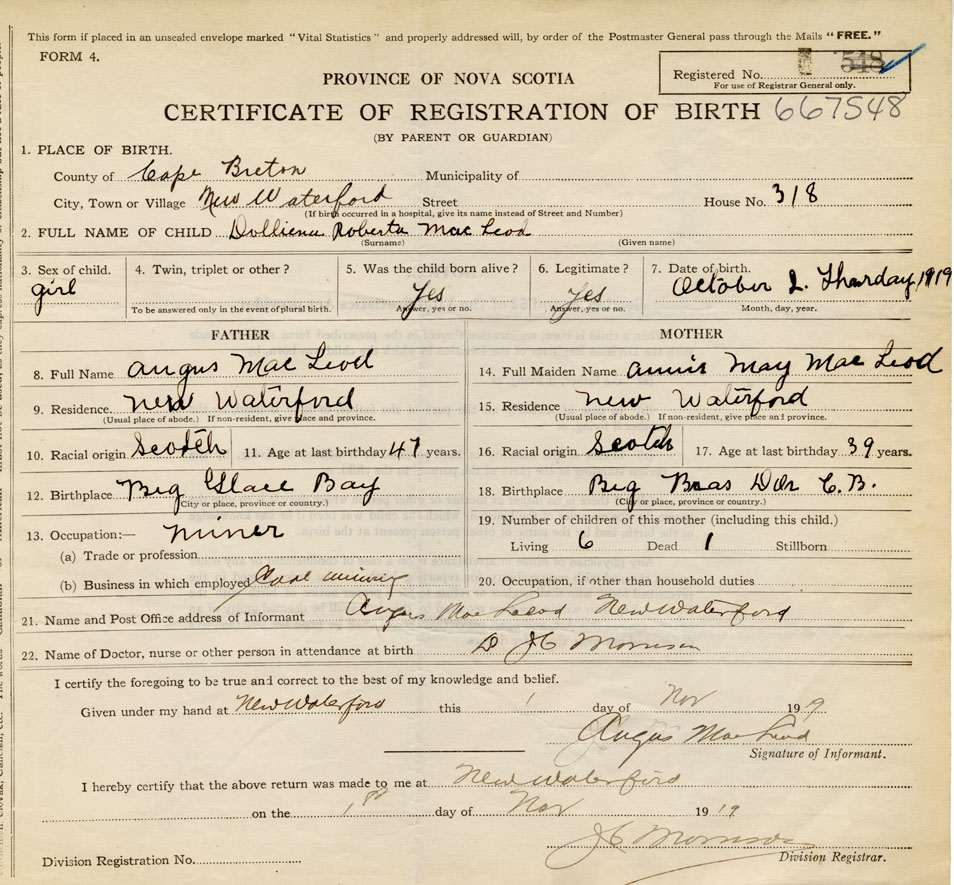 This form if placed in an unsealed envelope marked "Vital Statistics" and properly addressed will, by order of the Postmaster General pass through the Mails "FREE."
FORM 4.
Registered No. 548
For use of Registrar General only.
PROVINCE OF NOVA SCOTIA
CERTIFICATE OF REGISTRATION OF BIRTH 667548
(BY PARENT OR GUARDIAN)
1. PLACE OF BIRTH.
County of Cape Breton Municipality of
City, Town or Village New Waterford Street House No. 318
(If birth occurred in a hospital, give its name instead of Street and Number)
2. FULL NAME OF CHILD Dolliena Roberta Mac Leod
(Surname) (Given name)
3. Sex of child. girl
4. Twin, triplet or other?
To be answered only in the event of plural birth.
5. Was the child born alive? Yes
Answer, yes or no.
6. Legitimate? Yes
Answer, yes or no.
7. Date of birth.
October 2. Tharday, 1919
Month, day, year.
FATHER
8. Full Name angus Mac Leod
9. Residence. New Waterford
(Usual place of abode.) If non-resident, give place and province.
10. Racial origin Scotch 11. Age at last birthday 47 years.
12. Birthplace Big Glace Bay
(City or place, province or country.)
13. Occupation:— miner
(a) Trade or profession
(b) Business in which employed Coal mining
MOTHER
14. Full Maiden Name annie May Mac Leod
15. Residence new Waterford
(Usual place of abode.) If non-resident, give place and province.
16. Racial origin Scotch 17. Age at last birthday 39 years.
18. Birthplace Big Bras Dor C.B.
(City or place, province or country.)
19. Number of children of this mother (including this child.)
Living 6 Dead 1 Stillborn
20. Occupation, if other than household duties
21. Name and Post Office address of Informant Angus Mac Leod New Waterford
22. Name of Doctor, nurse or other person in attendance at birth D JC Morrison
I certify the foregoing to be true and correct to the best of my knowledge and belief.
Given under my hand at New Waterford this 1 day of Nov 19 19
Angus Mac Leod
Signature of Informant.
I hereby certify that the above return was made to me at New Waterford
on the 1st day of Nov 19 19
JC Morrison
Division Registrar.
Division Registration No.